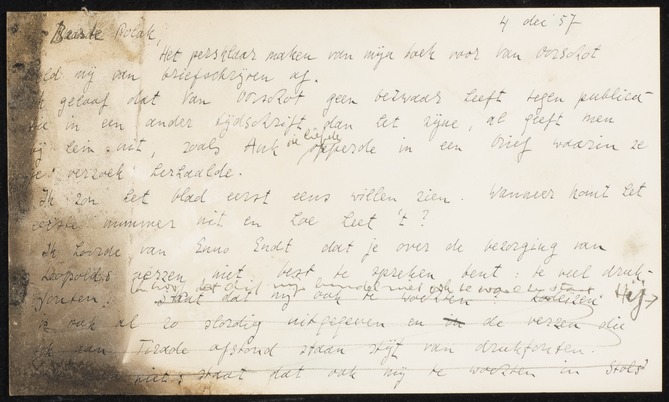 4 dec '57
Beste Polak,
Het persklaar maken van mijn boek voor Van Oorschot
mij van briefschrijven af.
geloof dat Van Oorschot geen bezwaar heeft tegen publica-
tie in een ander tijdschrift dan het zijne, al geeft men
uit, zoals Ank in een brief waarin ze
verzoek herhaalde.
Ik zou het blad eerst eens willen zien. Wanneer komt het
eerste nummer uit en hoe heet 't?
Ik hoorde van Enno Endt dat je over de bezorging van
Leopolds verzen niet best te spreken bent: te veel druk-
fouten. Staat dat mij ook te wachten? Lodeizen Hij
is ook al zo slordig uitgegeven en de verzen die
ik aan Tirade afstond staan stijf van drukfouten.
niet: staat dat ook mij te wachten in Stols'